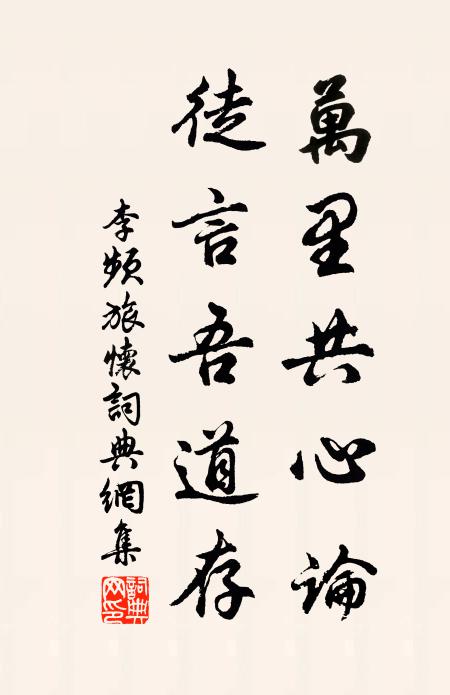 萬里共心論
徒言吾道存
李頻旅懷詞典網集
詞典網印